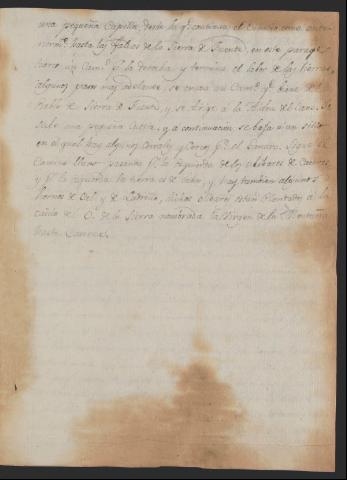 una pequeña Capilla, desde la q.e continua el Camino como ante-
riorm.te hasta las faldas de la Sierra de Fuente, en este parage
hace un Cam.o p.a la derecha y termina el labor de las tierras,
algunos pasos mas adelante, se cruza un Cam.o q.e viene de el
Pueblo de Sierra de Fuentes, y se dirije a la Aldea del Cano, Se
sube una pequeña Cuesta, y a continuación se baja a un sitio
en el qual hay algunos Corrales y Cercas p.a el Ganado. Sigue el
Camino llano p.r la izquierda de los olibares de Caceres
y p.r la izquierda la tierra es de labor, y hay tambien algunos
hornos de Cal y de Ladrillo, dichos olibares estan plantados a la
caida del O. de la Sierra nombrada la Virgen de la Montaña
hasta Caceres.